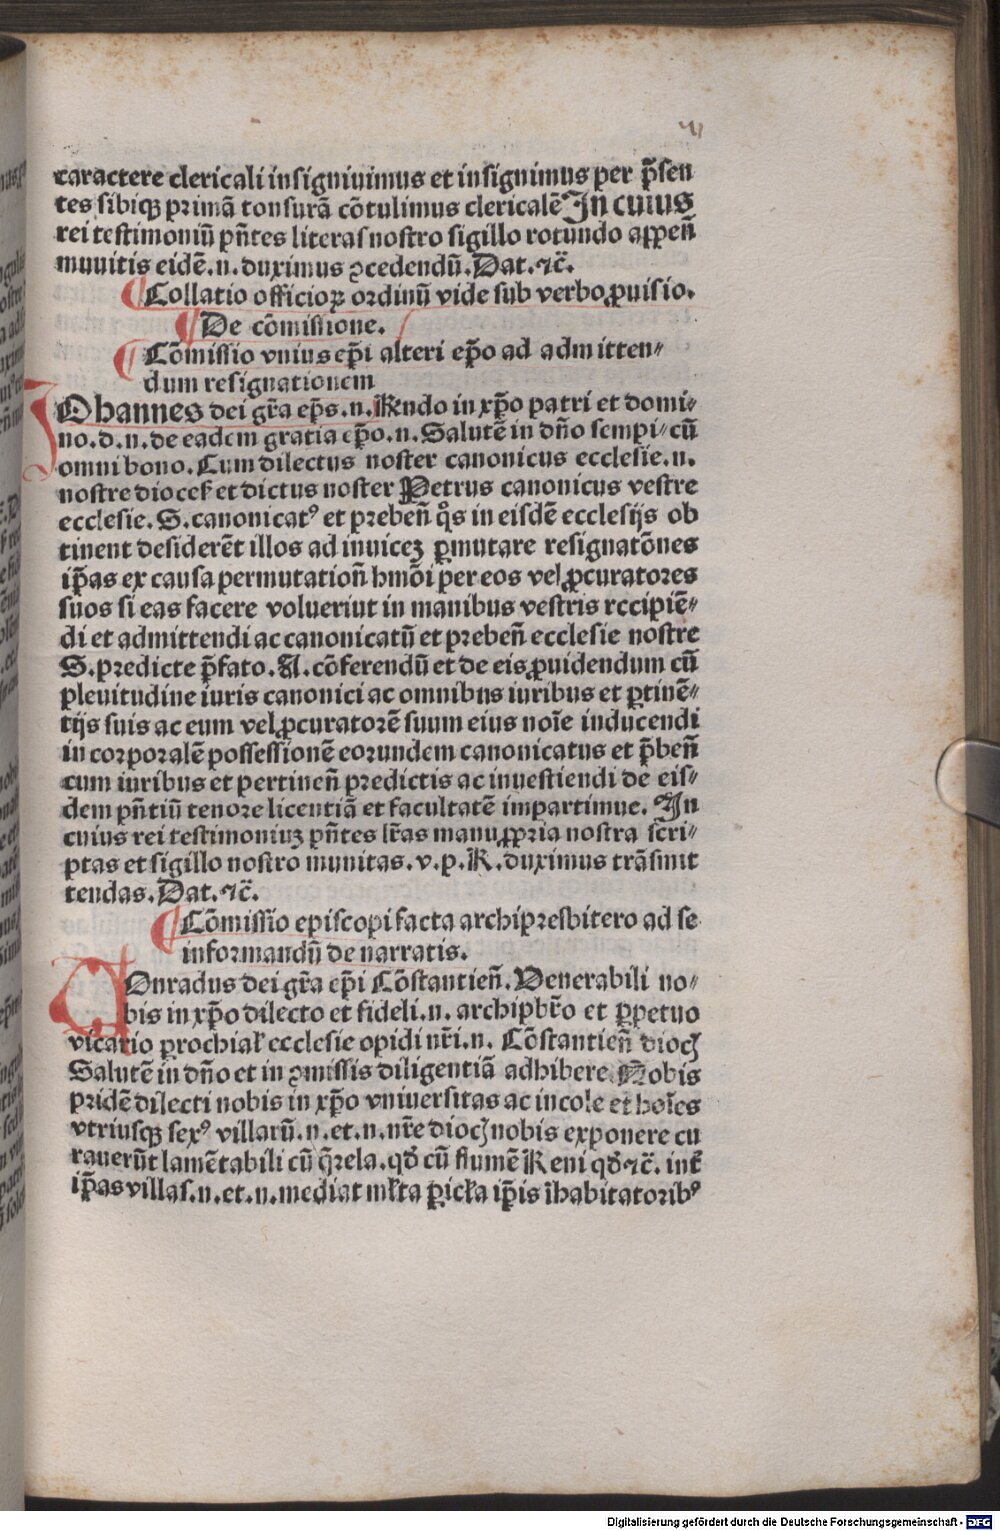 caractere clericali insigniuimus et insignimus per p̄sen
tes sibiqꝫ primā tonsurā cōtulimus clericalē In cuius
rei testimoniū pn̄tes literas nostro sigillo rotundo appen̄
munitis eidē.n.duximus ꝯcedendū.Dat.⁊c̄.
¶Collatio officioꝝ ordinū vide sub verbo ꝓuisio.
¶De cōmissione.
¶Cōmissio vnius ep̄i alteri ep̄o ad admitten⸗
dum resignationem
IOhannes dei gr̄a ep̄s.n.Reṅdo in xp̄o patri et domi⸗
no.d.n.de eadem gratia ep̄o.n.Salutē in dn̄o sempi⸗cū
omni bono.Cum dilectus noster canonicus ecclesie.n.
nostre dioceẜ et dictus noster Petrus canonicus vestre
ecclesie.S.canonicatꝰ et prebeñ qͦs in eisdē ecclesijs ob
tinent desiderēt illos ad inuiceꝫ ꝑmutare resignatōnes
ip̄as ex causa permutationū hmōi per eos vel ꝓcuratores
suos si eas facere voluerint in manibus vestris recipiē⸗
di et admittendi ac canonicatū et prebeñ ecclesie nostre
S.predicte p̄fato.A.cōferendū et de eis ꝓuidendum cū
plenitudine iuris canonici ac omnibus iuribus et ꝑtinē⸗
tijs suis ac eum vel ꝓcuratorē suum eius noīe inducendi
in corporalē possessionē eorundem canonicatus et p̄beñ
cum iuribus et pertineñ predictis ac inuestiendi de eis⸗
dem pn̄tiū tenore licentiā et facultatē impartimue. In
cuius rei testimoniuꝫ pn̄tes lr̄as manu ꝓpria nostra scri⸗
ptas et sigillo nostro munitas.v.p.R.duximus trāsmit
tendas.Dat.⁊c̄.
¶Cōmissio episcopi facta archipresbitero ad se
informandū de narratis.
COnradus dei gr̄a ep̄i Cōstantieñ.Venerabili no⸗
bis in xp̄o dilecto et fideli.n.archipbr̄o et ꝑpetuo
vicario ꝑrochiał ecclesie opidi nr̄i.n. Cōstantieñ dioc̄
Salutē in dn̄o et in ꝯmissis diligentiā adhibere.Nobis
pridē dilecti nobis in xp̄o vniuersitas ac incole et hoīes
vtriusqꝫ sexꝰ villarū.n.et.n.nr̄e dioc̄ nobis exponere cu
rauerūt lamētabili cū q̄rela.qd̄ cū flumē Reni qd̄ ⁊c̄.int̄
ip̄as villas.n.et.n.mediat młta ꝑicła ip̄is īhabitatoribꝰ
Digitalisierung gefördert durch die Deutsche Forschungsgemeinschaft - DFG